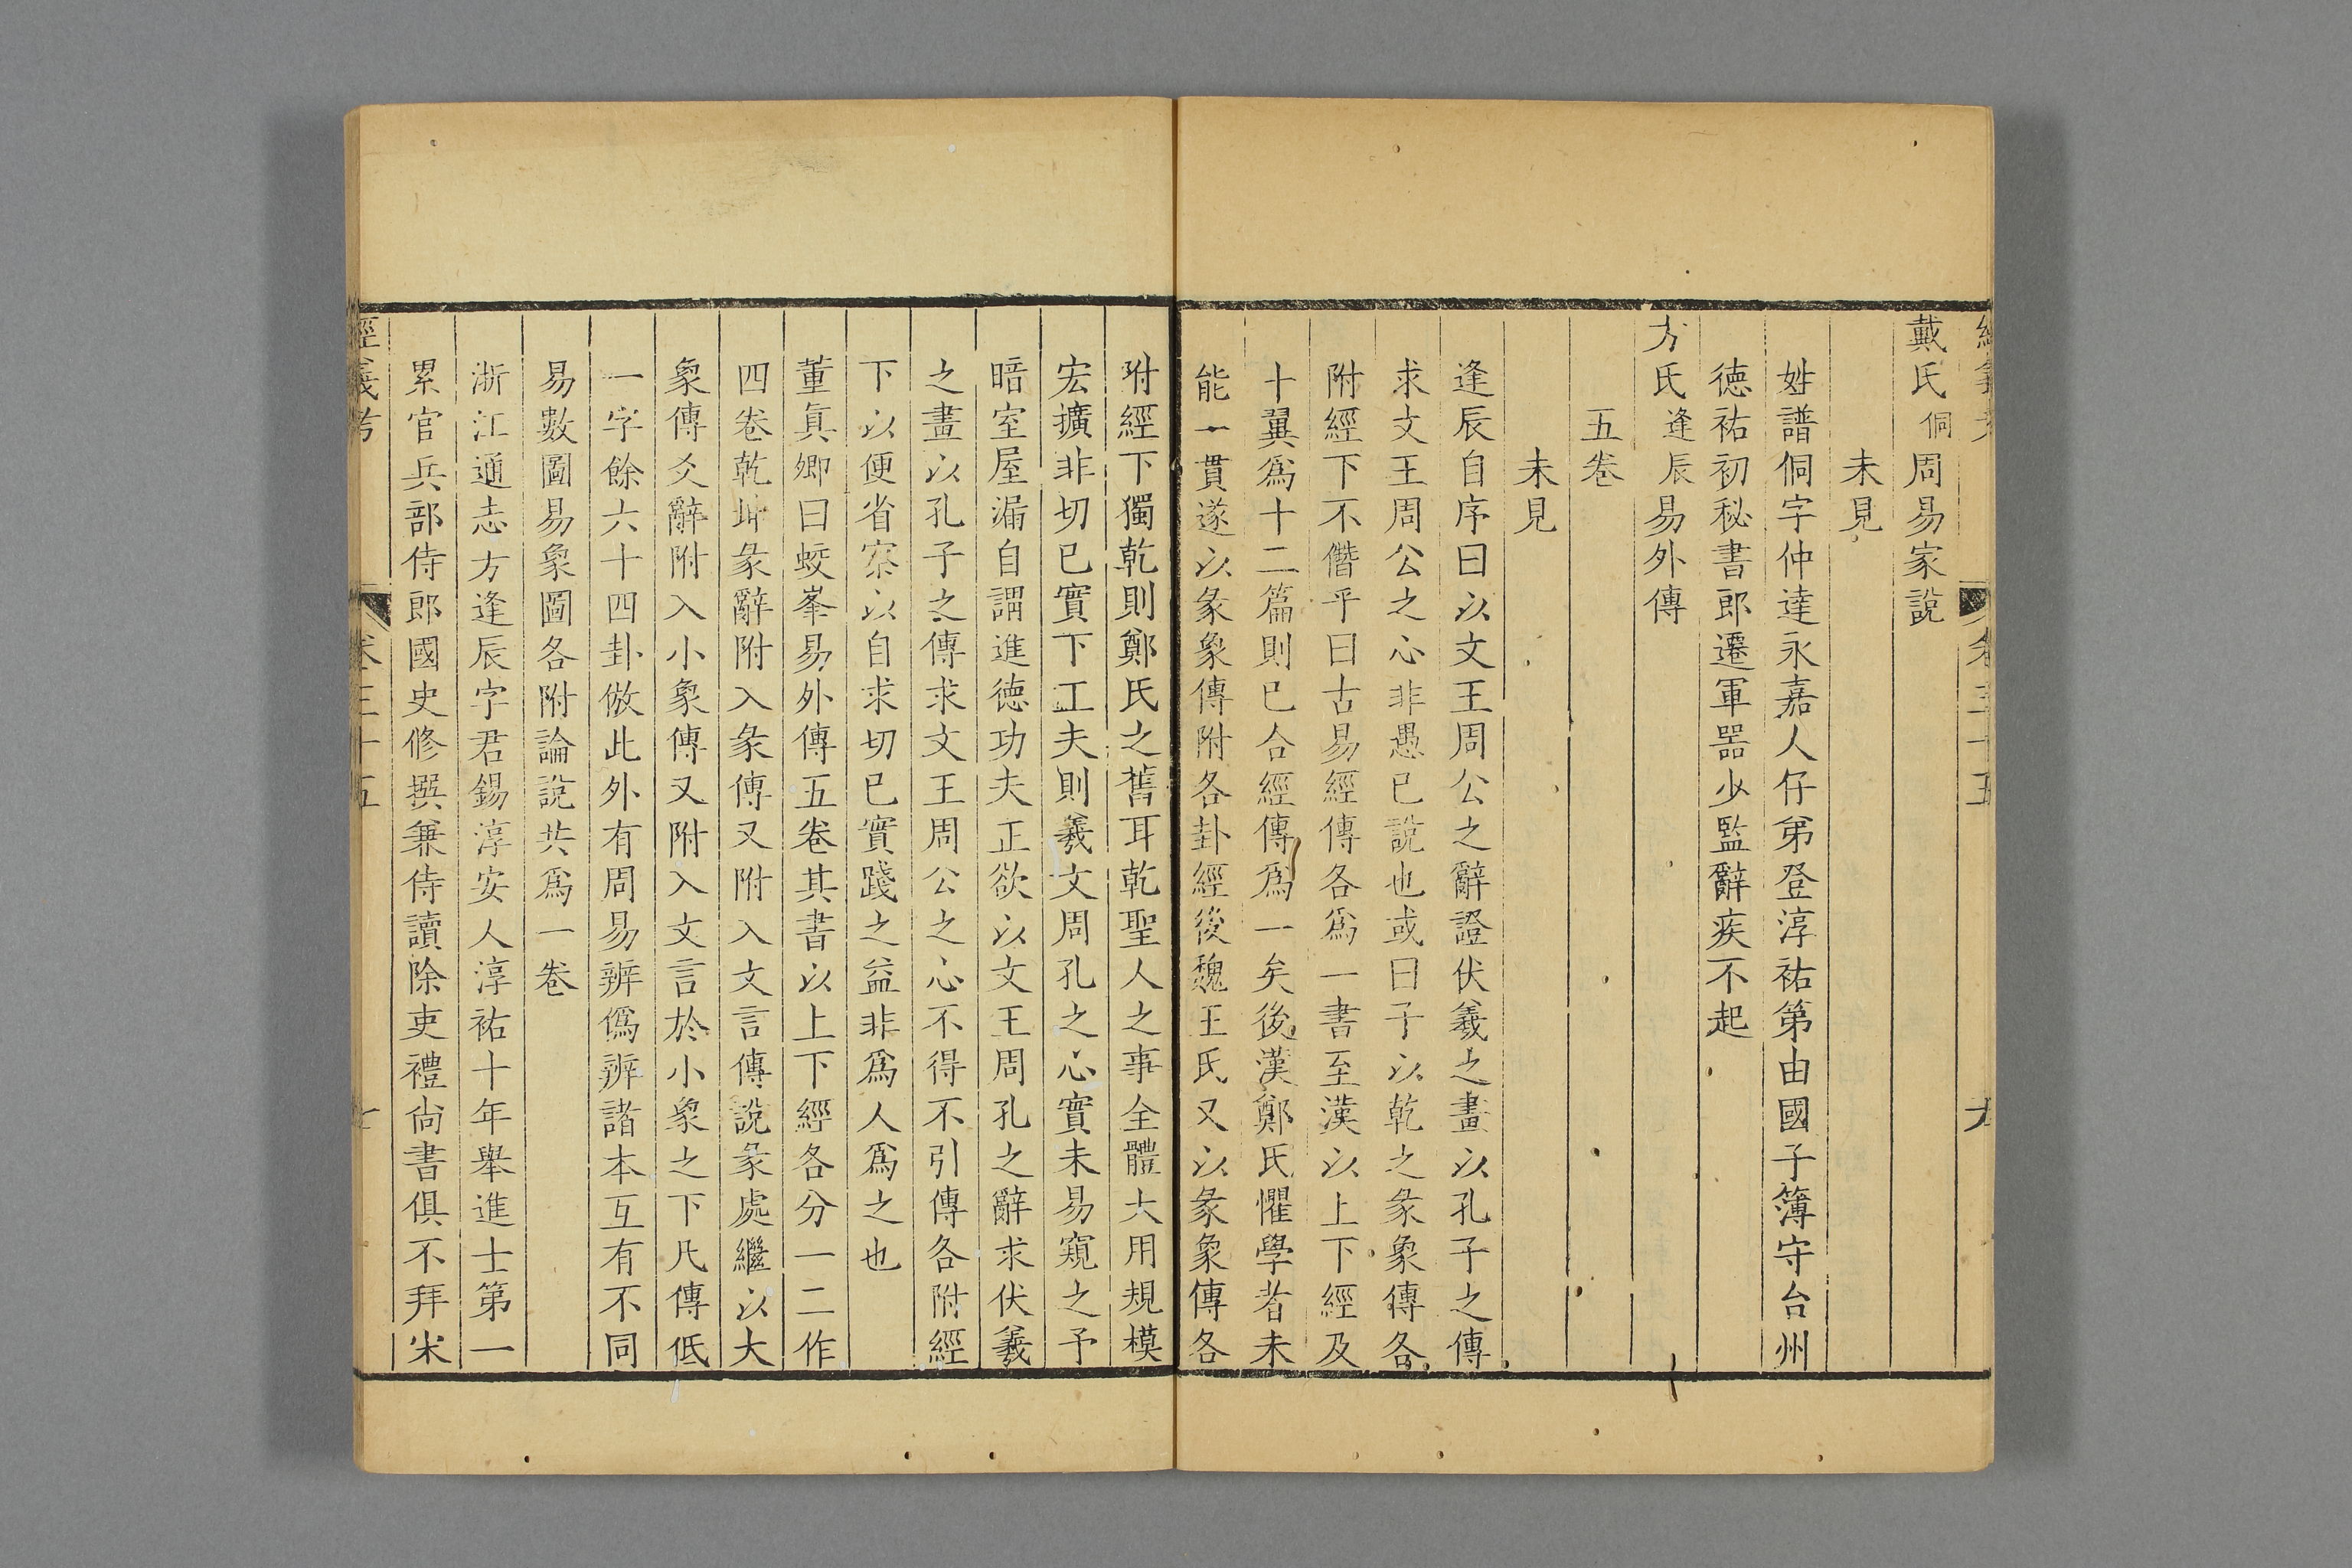 戴氏侗周易家說
未見
姓譜侗字仲達永嘉人仔弟登淳祐第由國子簿守台州
德祐初秘書郎遷軍器少監辭疾不起
方氏逢辰易外傳
五卷
未見
逢辰自序曰以文王周公之辭證伏羲之畫以孔子之傳
求文王周公之心非愚已說也或曰子以乾之彖象傳各
附經下不僭乎曰古易經傳各爲一書至漢以上下經及
十翼爲十二篇則已合經傳爲一矣後漢鄭氏懼學者未
能一貫遂以彖象傳附各卦經後魏王氏又以彖象傳各
附經下獨乾則鄭氏之舊耳乾聖人之事全體大用規模
宏擴非切已實下工夫則羲文周孔之心實未易窺之予
暗室屋漏自謂進德功夫正欲以文王周孔之辭求伏羲
之畫以孔子之傳求文王周公之心不得不引傳各附經
下以便省察以自求切已實踐之益非爲人爲之也
董眞卿曰蛟峯易外傳五卷其書以上下經各分一二作
四卷乾坤彖辭附入彖傳又附入文言傳說彖處繼以大
象傳爻辭附入小象傳又附入文言於小象之下凡傳低
一字餘六十四卦倣此外有周易辨僞辨諸本互有不同
易數圖易象圖各附論說共爲一卷
浙江通志方逢辰字君錫淳安人淳祐十年舉進士第一
累官兵部侍郎國史修撰兼侍讀除吏禮尚書俱不拜宋
經義考
卷三十五